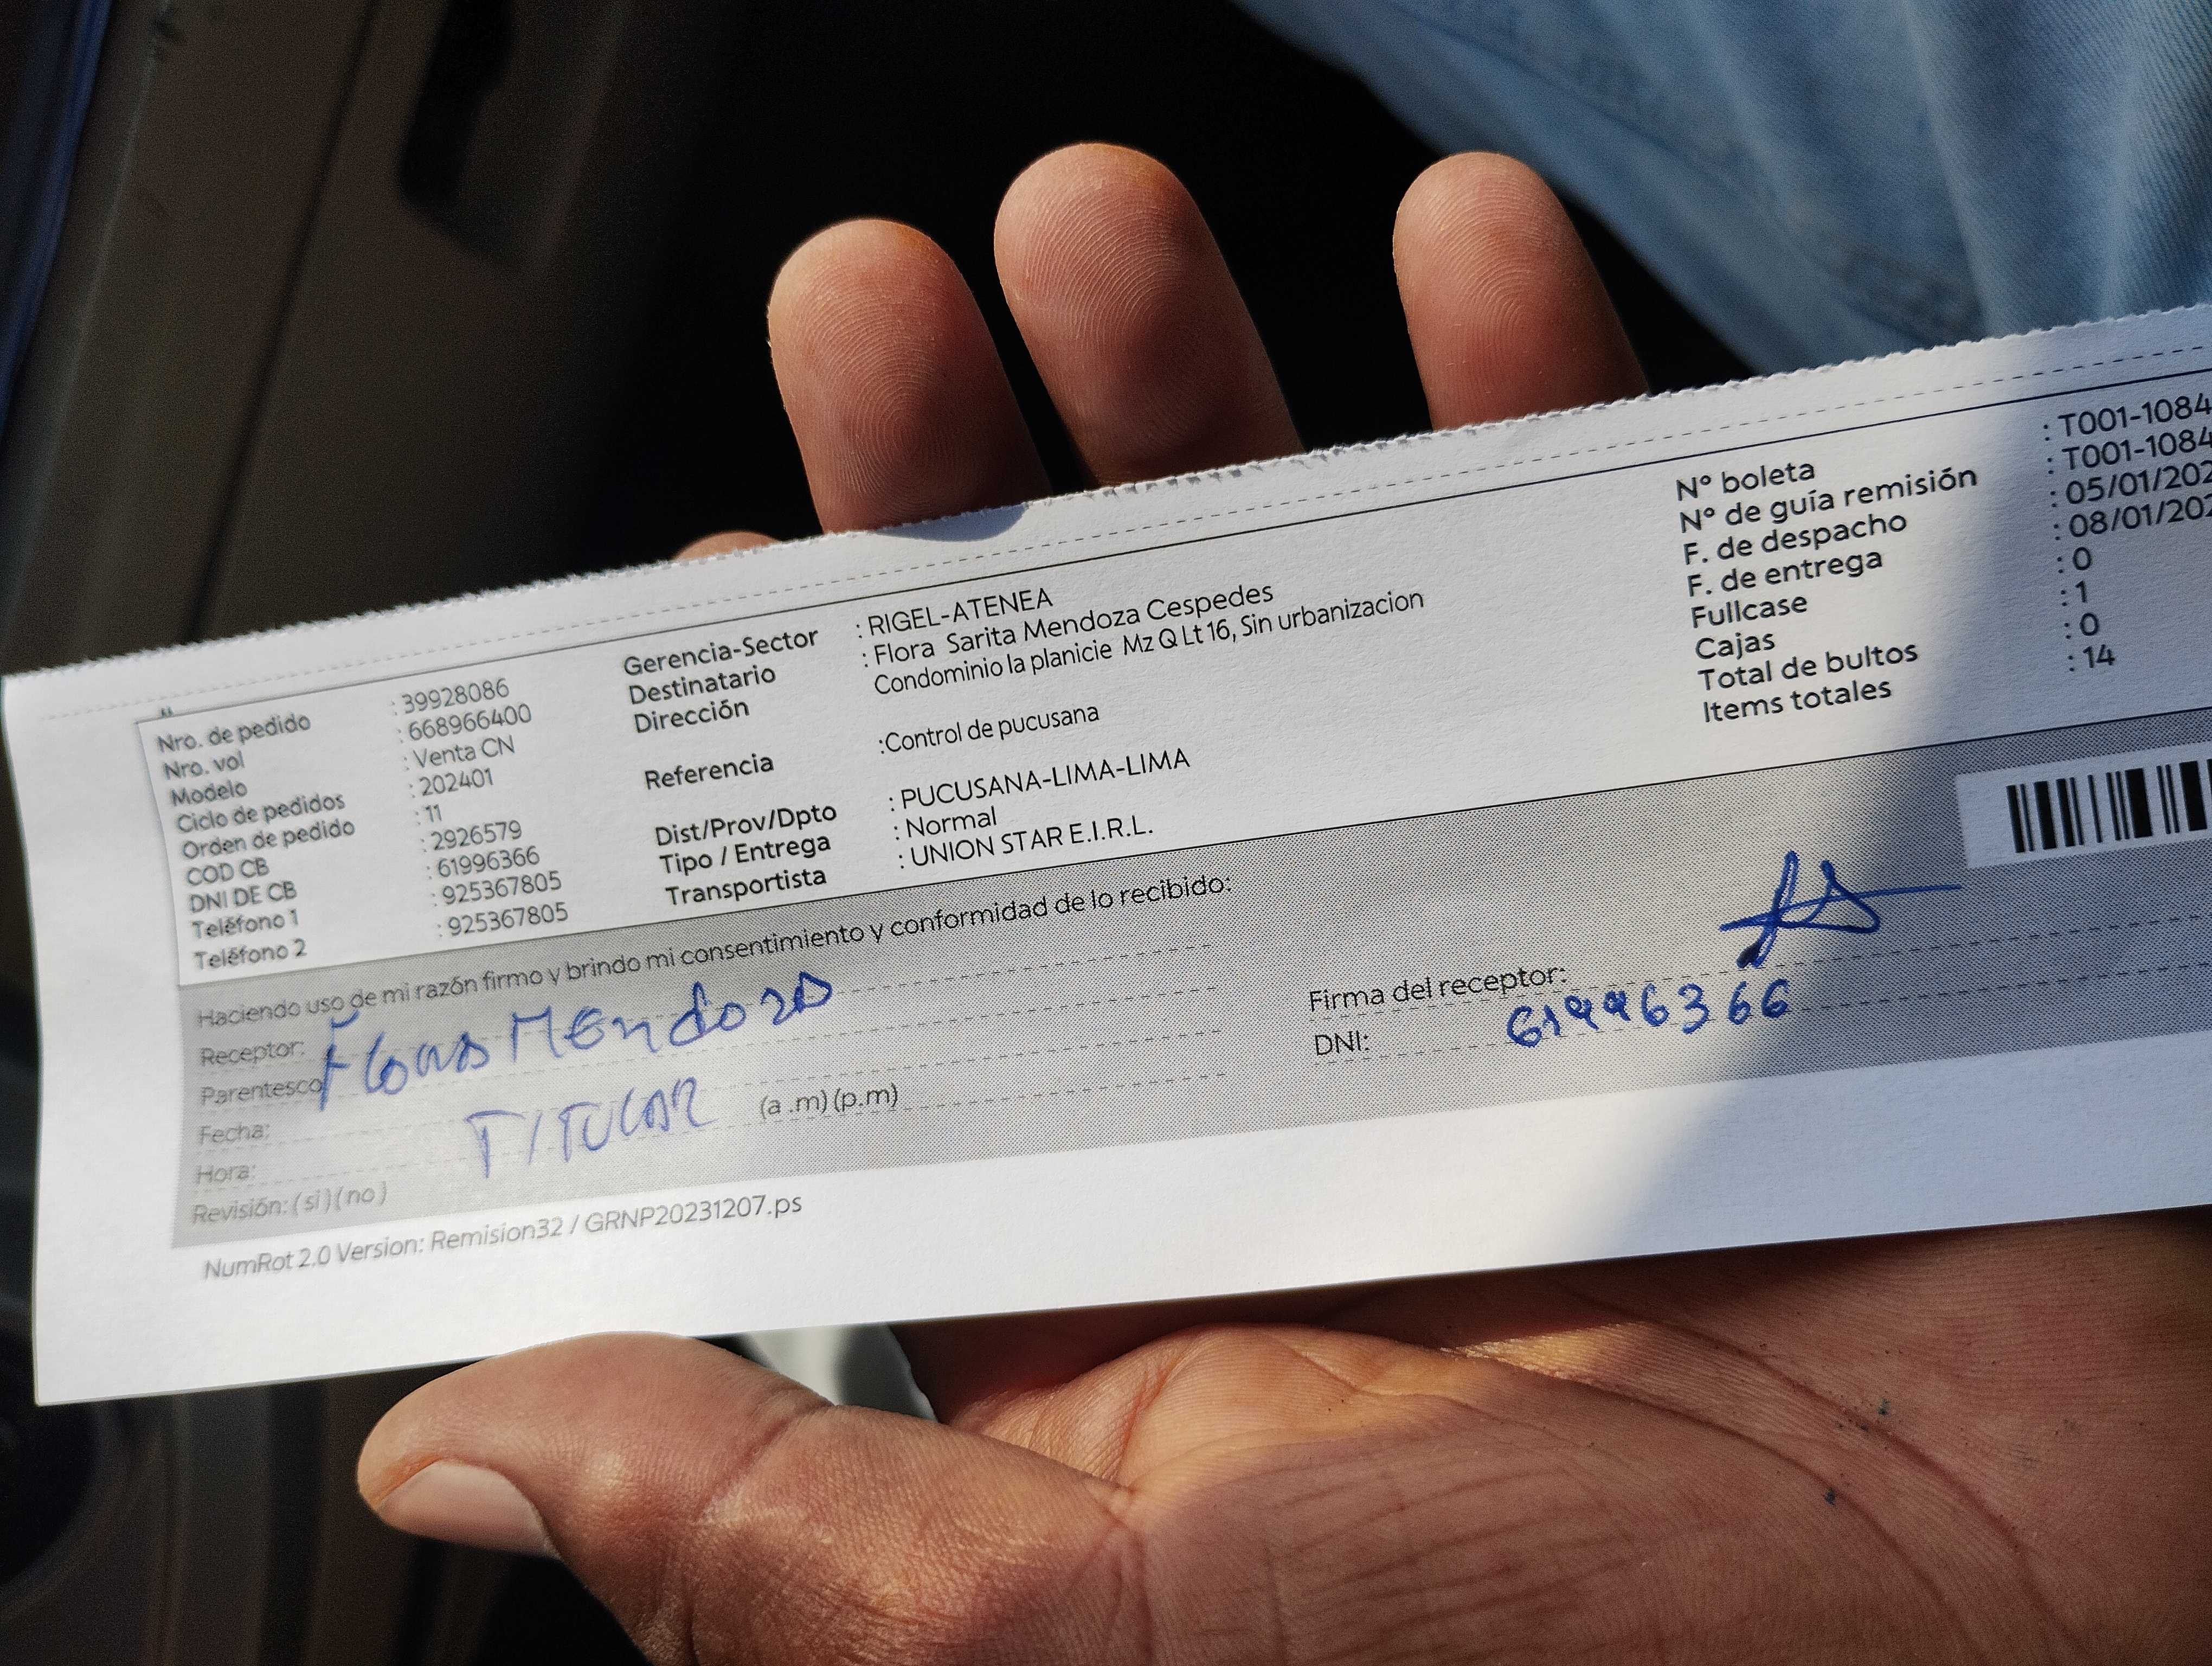 Nro. de pedido : 39928086
Nro. vol : 668966400
Modelo : Venta CN
Ciclo de pedidos : 202401
Orden de pedido : 11
COD CB : 2926579
DNI DE CB : 61996366
Teléfono 1 : 925367805
Teléfono 2 : 925367805
Gerencia-Sector : RIGEL-ATENEA
Destinatario : Flora Sarita Mendoza Cespedes
Dirección Condominio la planicie Mz Q Lt 16, Sin urbanizacion
Referencia :Control de pucusana
Dist/Prov/Dpto : PUCUSANA-LIMA-LIMA
Tipo / Entrega : Normal
Transportista : UNION STAR E.I.R.L.
N° boleta : T001-1084
N° de guía remisión : T001-1084
F. de despacho : 05/01/202
F. de entrega : 08/01/202
Fullcase : 0
Cajas : 1
Total de bultos : 0
Items totales : 14
Haciendo uso de mi razón firmo y brindo mi consentimiento y conformidad de lo recibido:
Receptor: Mendoza
Parentesco
Fecha: TITULAR
Hora: (a .m) (p.m)
Revisión: ( si ) ( no )
Firma del receptor:
DNI: 61996366
NumRot 2.0 Version: Remision32 / GRNP20231207.ps